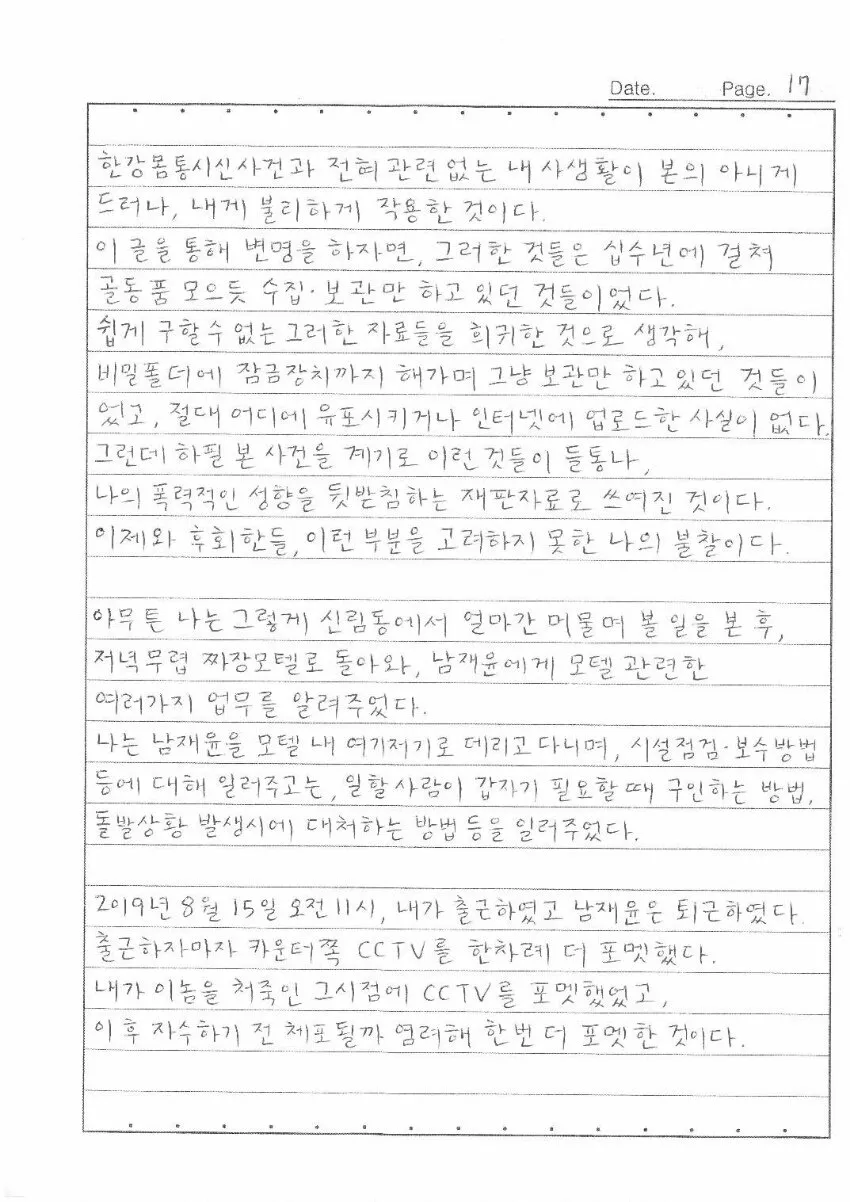 Date. Page. 17
한강몸통시신사건과 전혀 관련 없는 내 사생활이 본의 아니게
드러나, 내게 불리하게 작용한 것이다.
이 글을 통해 변명을 하자면, 그러한 것들은 십수년에 걸쳐
골동품 모으듯 수집·보관만 하고 있던 것들이었다.
쉽게 구할 수 없는 그러한 자료들을 희귀한 것으로 생각해,
비밀폴더에 잠금장치까지 해가며 그냥 보관만 하고 있던 것들이
었고, 절대 어디에 유포시키거나 인터넷에 업로드한 사실이 없다.
그런데 하필 본 사건을 계기로 이런 것들이 들통나,
나의 폭력적인 성향을 뒷받침하는 재판자료로 쓰여진 것이다.
이제와 후회한들, 이런 부분을 고려하지 못한 나의 불찰이다.
아무튼 나는 그렇게 신림동에서 얼마간 머물며 볼 일을 본 후,
저녁무렵 짜장모텔로 돌아와, 남재윤에게 모텔 관련한
여러가지 업무를 알려주었다.
나는 남재윤을 모텔 내 여기저기로 데리고 다니며, 시설점검·보수방법
등에 대해 일러주고는, 일할 사람이 갑자기 필요할 때 구인하는 방법,
돌발상황 발생시에 대처하는 방법 등을 일러주었다.
2019년 8월 15일 오전 11시, 내가 출근하였고 남재윤은 퇴근하였다.
출근하자마자 카운터쪽 CCTV를 한차례 더 포멧했다.
내가 이놈을 쳐죽인 그시점에 CCTV를 포멧했었고,
이후 자수하기 전 체포될까 염려해 한번 더 포멧한 것이다.